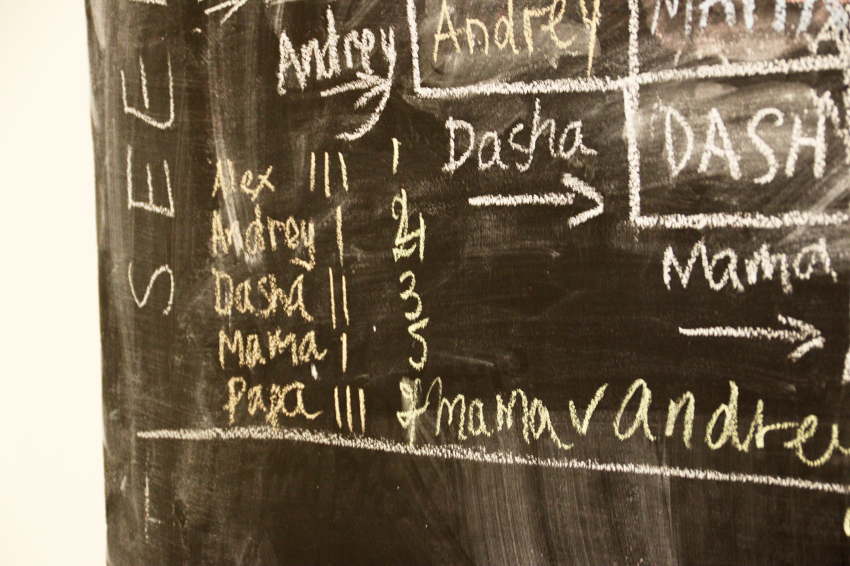 Andrey
Andrey
Dasha
DASH
Mama
Alex III 1
Andrey I 4
Dasha II 3
Mama I 5
Papa III
mama v andrey
SEE